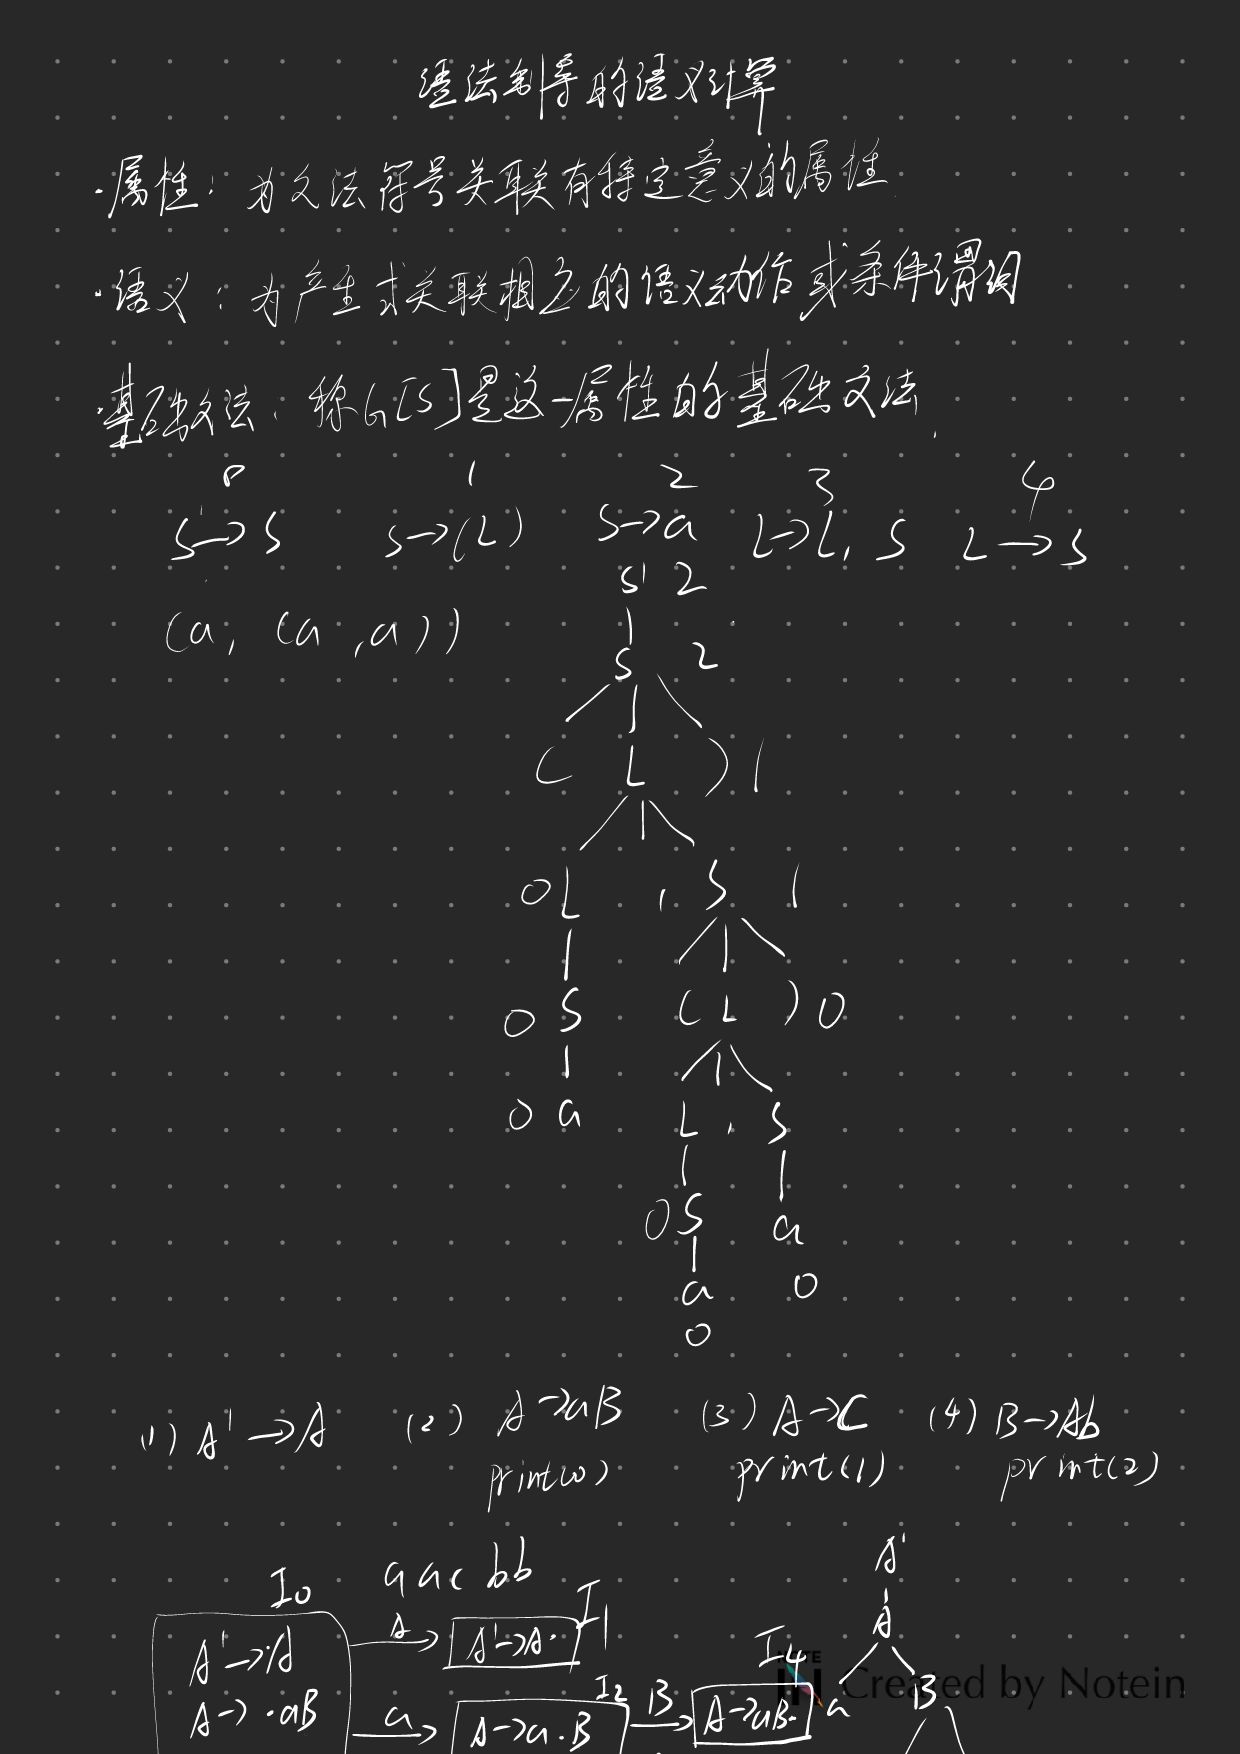 语法制导的语义计算
·属性：为文法符号关联有特定意义的属性
·语义：为产生式关联相应的语义动作或条件谓词
·基础文法：称G[S]是这一属性的基础文法
0 1 2 3 4
S'→S S→(L) S→a L→L,S L→S
S' 2
(a, (a,a))
S 2
( L ) 1
0 L , S 1
0 S ( L ) 0
0 a L , S
0 S a
a 0
0
(1) A'→A (2) A→aB (3) A→C (4) B→Ab
print(0) print(1) print(2)
A'
I0 aacbb I1
A'→·A A A'→A· I4 A
A→·aB a I2 A→a·B B A→aB· a B
Created by Notein